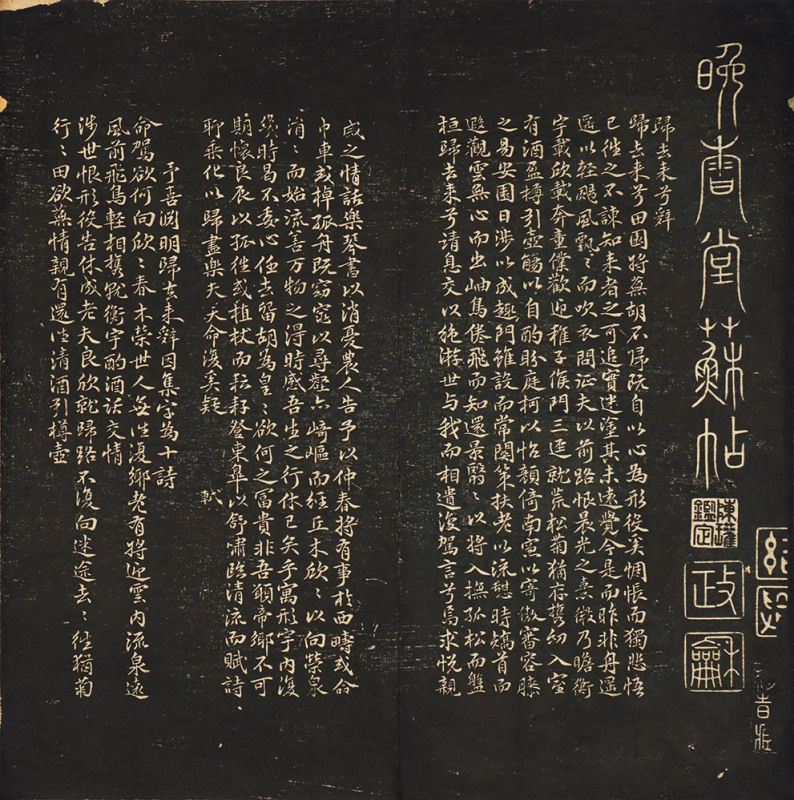 晚香堂蘇帖
政龢
歸去来兮辭
歸去来兮田園將蕪胡不歸既自以心為形役奚惆悵而獨悲悟
已徃之不諫知来者之可追實迷塗其未遠覺今是而昨非舟遥
遥以輕颺風飄〻而吹衣問征夫以前路恨晨光之熹微乃瞻衡
宇載欣載奔童僕歡迎稚子候門三逕就荒松菊猶存攜幼入室
有酒盈樽引壺觴以自酌眄庭柯以怡顏倚南窗以寄傲審容膝
之易安園日涉以成趣門雖設而常關策扶老以流憩時矯首而
遐觀雲無心而出岫鳥倦飛而知還景翳〻以將入撫孤松而盤
桓歸去来兮請息交以絶游世与我而相遺復駕言兮焉求悦親
戚之情話樂琴書以消憂農人告予以仲春將有事於西疇或命
巾車或棹孤舟既窈窕以尋壑亦崎嶇而經丘木欣〻以向榮泉
涓〻而始流善万物之得時感吾生之行休已矣乎寓形宇内復
幾時曷不委心任去留胡為皇〻欲何之富貴非吾願帝鄉不可
期懷良辰以孤徃或植杖而耘耔登東皐以舒嘯臨清流而賦詩
聊乘化以歸盡樂夫天命復奚疑
軾
予喜淵明歸去来辭因集字為十詩
命駕欲何向欣〻春木榮世人無徃復鄉老有將迎雲内流泉遠
風前飛鳥輕相攜就衡宇酌酒話交情
涉世恨形役告休成老夫良欣就歸路不復向迷途去〻徑猶菊
行〻田欲蕪情親有還徃清酒引樽壺